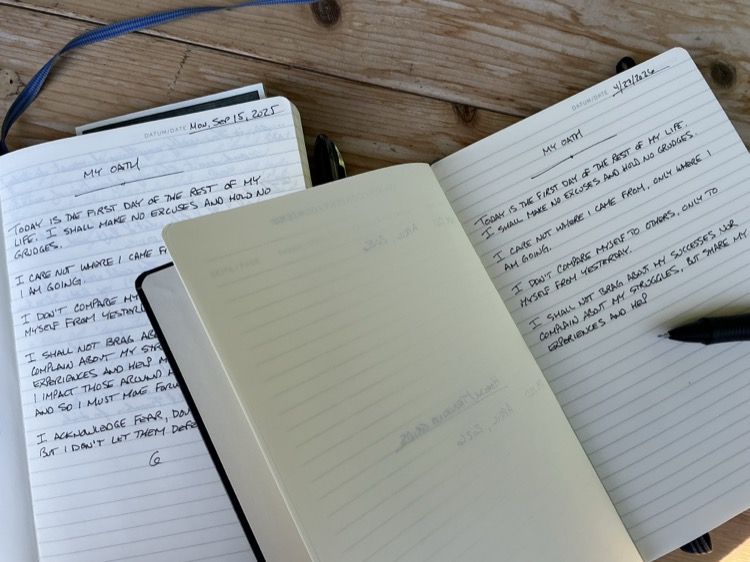 DATUM/DATE MON, SEP 15, 2025
MY OATH
TODAY IS THE FIRST DAY OF THE REST OF MY
LIFE. I SHALL MAKE NO EXCUSES AND HOLD NO
GRUDGES.
I CARE NOT WHERE I CAME
I AM GOING.
I DON'T COMPARE
MYSELF FROM
I SHALL NOT BRAG
COMPLAIN ABOUT MY
EXPERIENCES AND HELP
I IMPACT THOSE AROUND
AND SO I MUST MOVE
I ACKNOWLEDGE FEAR,
BUT I DON'T LET THEM
G
DATUM/DATE 4/27/2026
MY OATH
TODAY IS THE FIRST DAY OF THE REST OF MY LIFE.
I SHALL MAKE NO EXCUSES AND HOLD NO GRUDGES.
I CARE NOT WHERE I CAME FROM, ONLY WHERE I
AM GOING.
I DON'T COMPARE MYSELF TO OTHERS, ONLY TO
MYSELF FROM YESTERDAY.
I SHALL NOT BRAG ABOUT MY SUCCESSES NOR
COMPLAIN ABOUT MY STRUGGLES, BUT SHARE MY
EXPERIENCES AND HELP